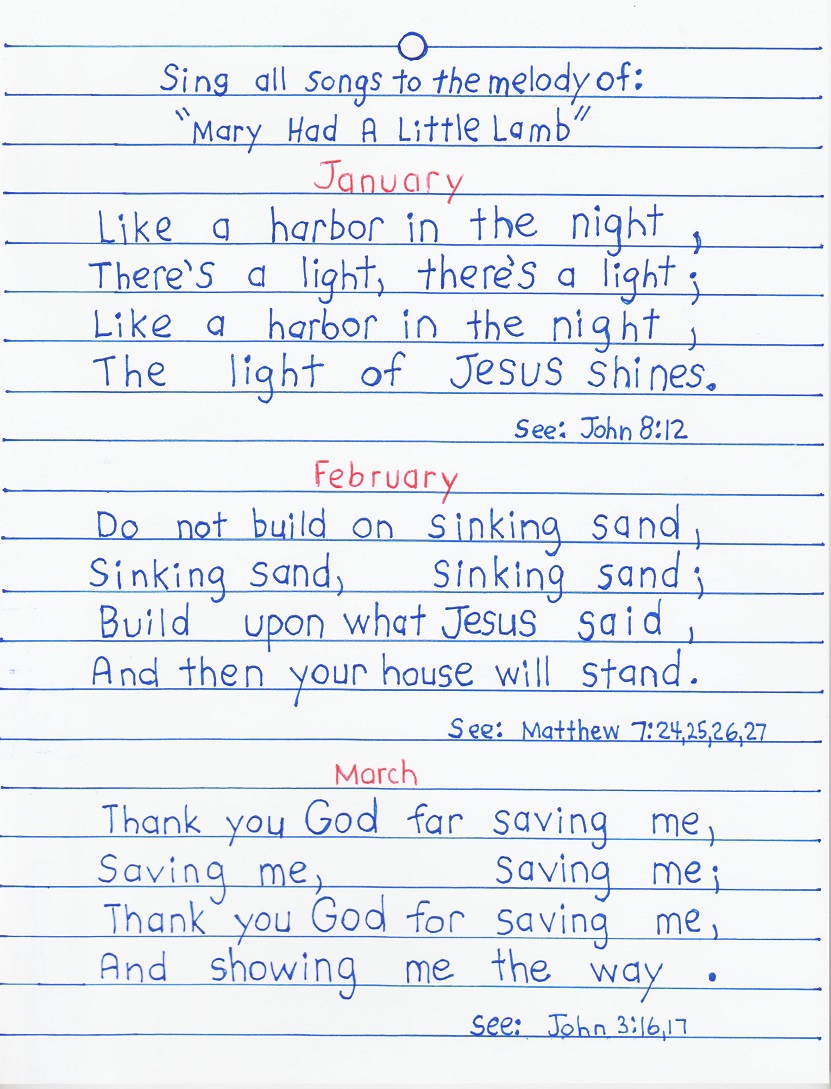 Sing all songs to the melody of:
"Mary Had A Little Lamb"
January
Like a harbor in the night,
There's a light, there's a light;
Like a harbor in the night,
The light of Jesus shines.
See: John 8:12
February
Do not build on sinking sand,
Sinking sand, sinking sand;
Build upon what Jesus said,
And then your house will stand.
See: Matthew 7:24,25,26,27
March
Thank you God far saving me,
Saving me, saving me;
Thank you God for saving me,
And showing me the way.
See: John 3:16,17